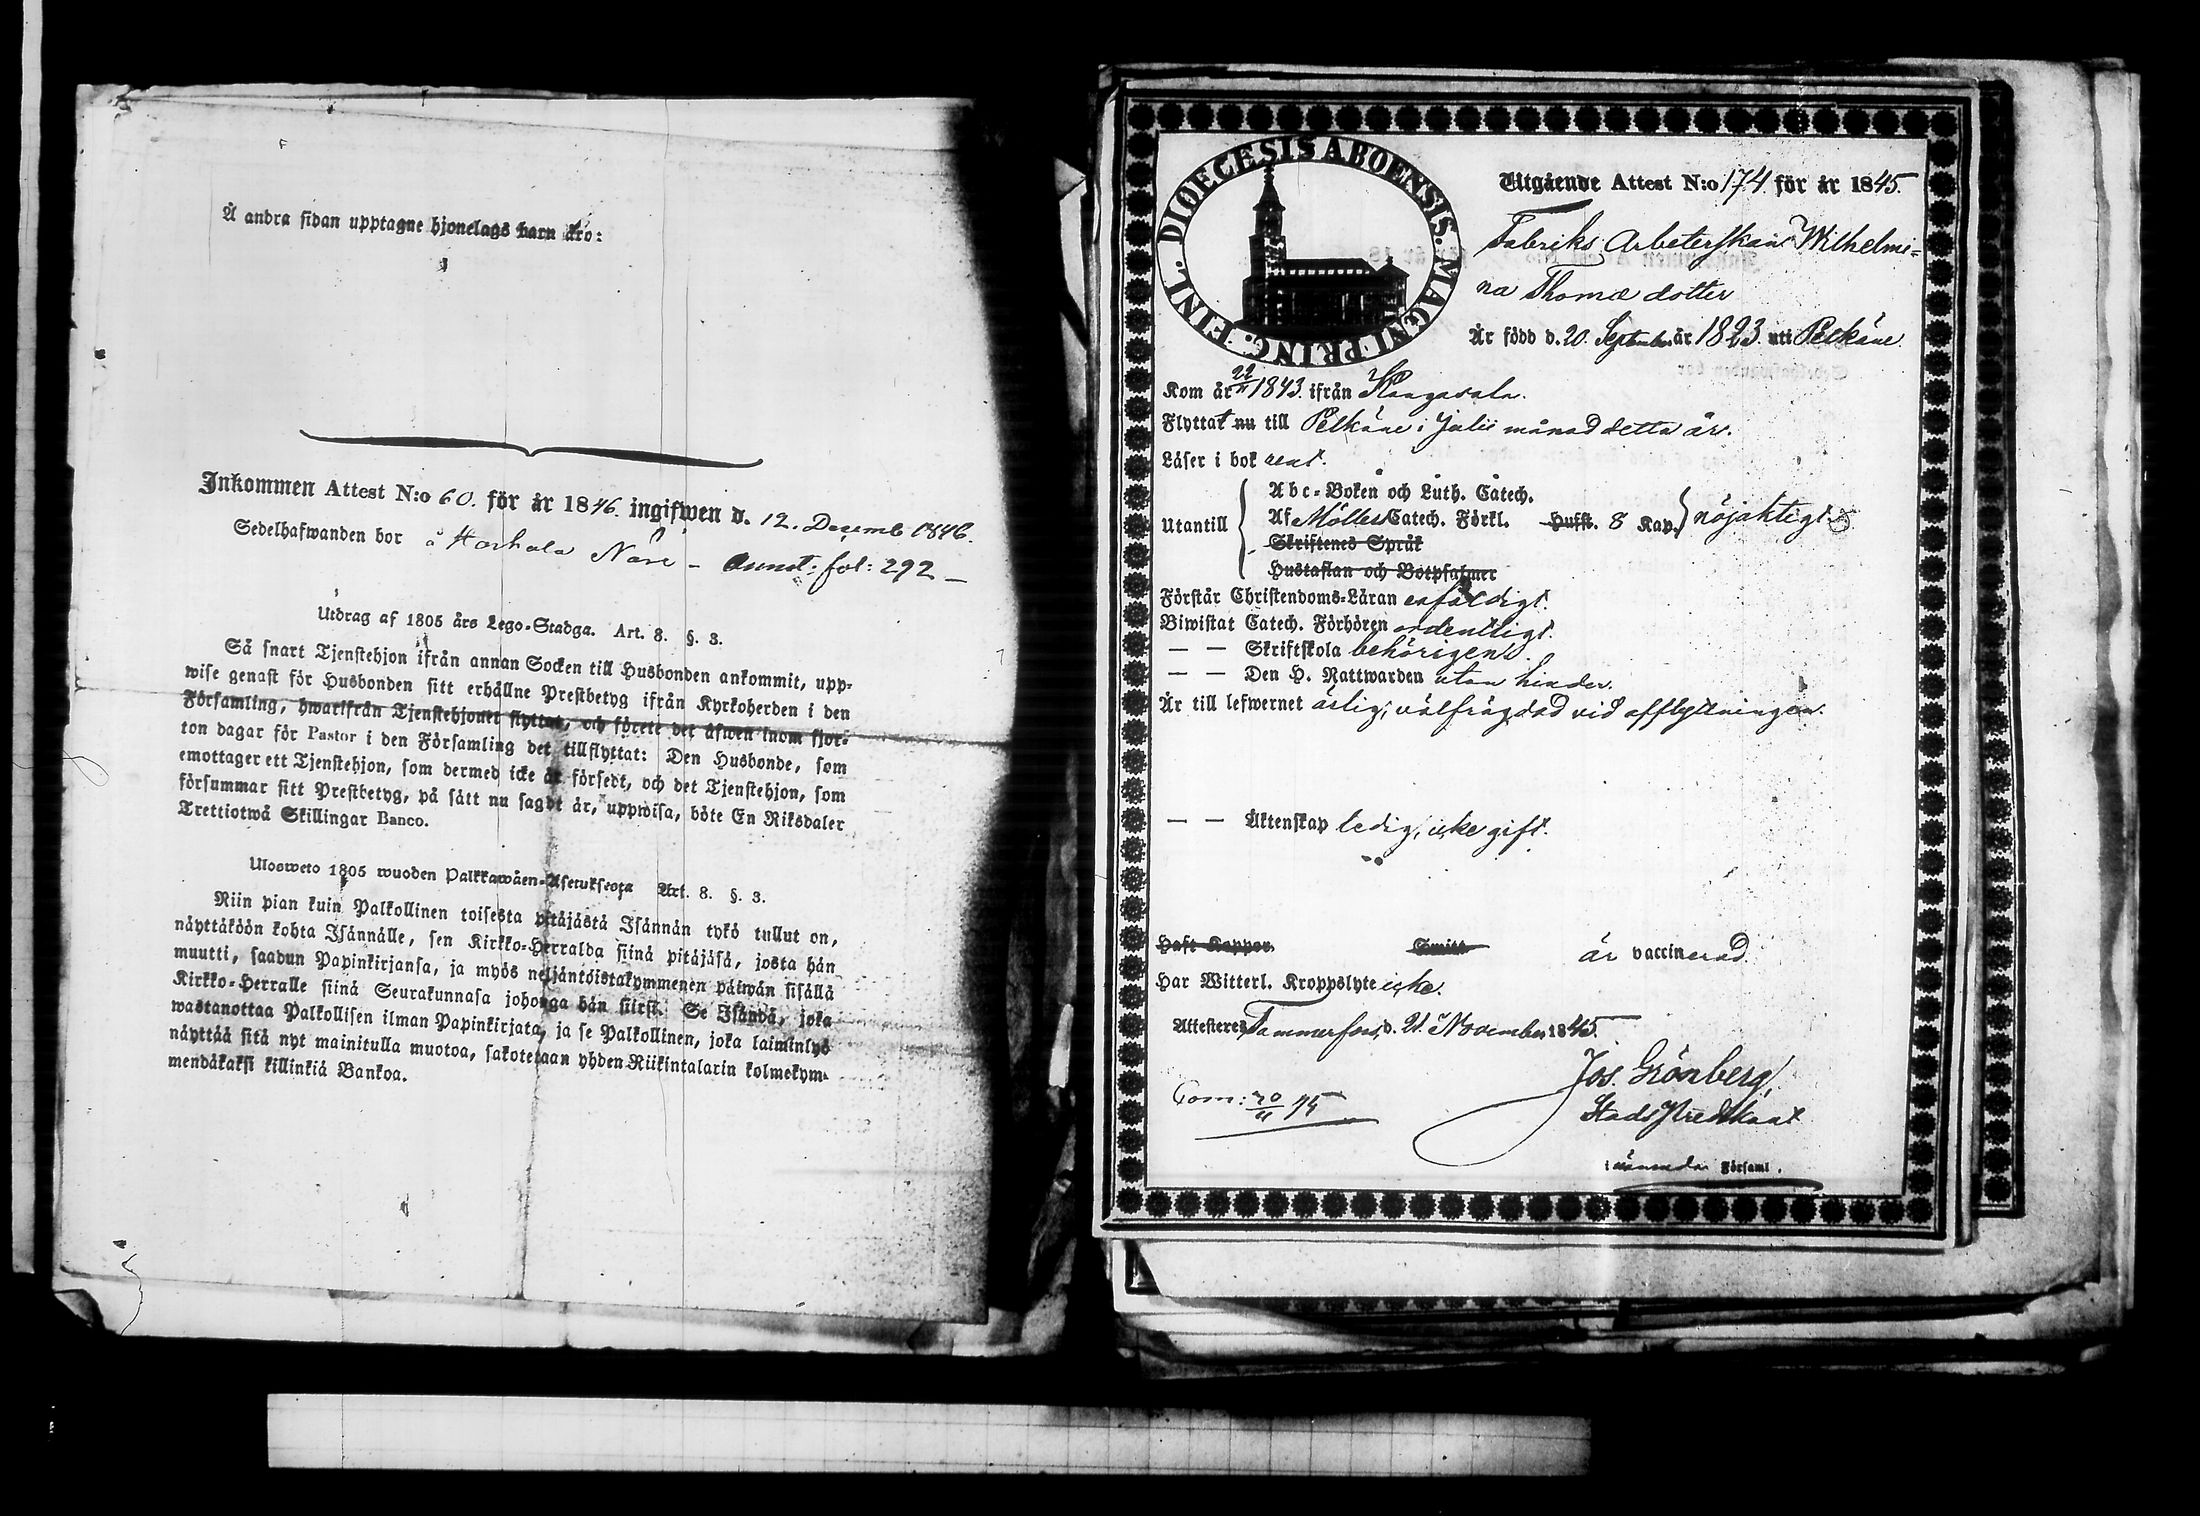 Å andra sidan upptagne hjonelags barn äro:
Inkommen Attest N:o 60. för år 1846. ingifwen d. 12. Decemb 1846.
Sedelhafwanden bor å Harhala Näri - Annot: fol: 292 -
Utdrag af 1805 års Lego-Stadga. Art. 8. §. 3.
Så snart Tjenstehjon ifrån annan Socken till Husbonden ankommit, upp-
wise genast för Husbonden sitt erhållne Prestbetyg ifrån Kyrkoherden i den
Församling, hwarifrån Tjenstehjonet flyttat, och förete det äfwen inom fjor-
ton dagar för Pastor i den Församling det tillflyttat: Den Husbonde, som
emottager ett Tjenstehjon, som dermed icke är försedt, och det Tjenstehjon, som
försummar sitt Prestbetyg, på sätt nu sagdt är, uppwisa, böte En Riksdaler
Trettiotwå Skillingar Banco.
Ulosweto 1805 wuoden Palkkawäen-Asetuksesta Art. 8. §. 3.
Niin pian kuin Palkollinen toisesta pitäjästä Isännän tykö tullut on,
näyttäköön kohta Isännälle, sen Kirkko-Herralda siinä pitäjäsä, josta hän
muutti, saadun Papinkirjansa, ja myös neljäntöistakymmenen päiwän sisällä
Kirkko-Herralle siinä Seurakunnasa johonga hän siirsi. Se Isändä, joka
wastanottaa Palkollisen ilman Papinkirjata, ja se Palkollinen, joka laiminlyö
näyttää sitä nyt mainitulla muotoa, sakotetaan yhden Riikintalarin kolmekym-
mendäkaksi killinkiä Bankoa.
DIOECESIS ABOENSIS. MAGNI PRINC. FINL.
Utgående Attest N:o 174 för år 1845
Fabriks Arbeterskan Wilhelmi=
na Thomæ dotter
Är född d. 20 September år 1823 uti Pelkäne
Kom år 22/11 1843. ifrån Kangasala.
Flyttat nu till Pelkäne i Julii månad detta år.
Läser i bok rent.
Abc-Boken och Luth. Catech.
Utantill Af Möllers Catech. Förkl. Hufst. 8 Kap. nöjaktigt
Skriftenes Språk
Hustaflan och Botpsalmer
Förstår Christendoms-Läran enfaldigt.
Biwistat Catech. Förhören ordentligt.
— — Skriftskola behörigen
— — Den H. Nattwarden utan hinder.
Är till lefwernet ärlig, välfrägdad vid afflyttningen.
— — Äktenskap ledig, icke gift.
Haft Koppor Smitt är vaccinerad
Har Witterl. Kroppslyte icke.
Attesteres Tammerfors, d. 21 November 1845
Jos. Grönberg
Stads Predikant
Com: 30/11 45
i nämnda Församl.